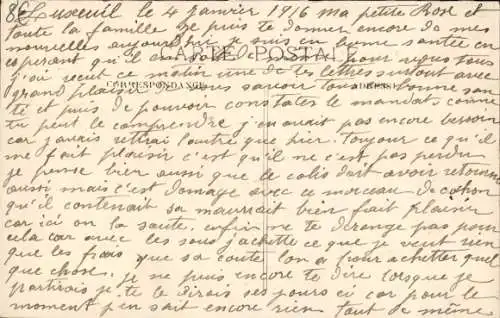 86 Luxeuil le 4 Janvier 1916 Ma petite Rose et
toute la famille je puis te donner encore de mes
nouvelles aujourd'hui je suis en bonne santée en
CARTE POSTALE
esperant qu'il en soit de même pour vous tous
j'ai recut ce matin une de tes lettres surtout avec
grand plaisir vous savoir tous en bonne san
CORRESPONDANCE
ADRESSE
té et puis de pouvoir constater le mandat comme
tu peut le comprendre j'en avait pas encore besoin
car j'avais retirai l'autre que hier. Toujour ce qu'il
me fait plaisir c'est qu'il ne c'est pas perdu
je pense bien aussi que le colis doit avoir retourné
aussi mais c'est domage avec ce morceau de cochon
qu'il contenait sa m'aurait bien fait plaisir
car ici on la saute. enfin ne te derange pas pour
cela car avec les sous j'achette ce que je veut rien
que les frais que sa coute l'on a pour achetter quel
que chose. je ne puis encore te dire lorsque je
partirais je te le dirais ses jours ci car pour le
moment j'en sait encore rien tout de même